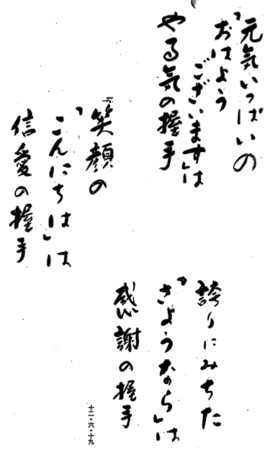 元気いっぱいの
「おはよう
ございます」は
やる気の握手
笑顔の
「こんにちは」は
信愛の握手
誇りにみちた
「さようなら」は
感謝の握手
十二・六・十九